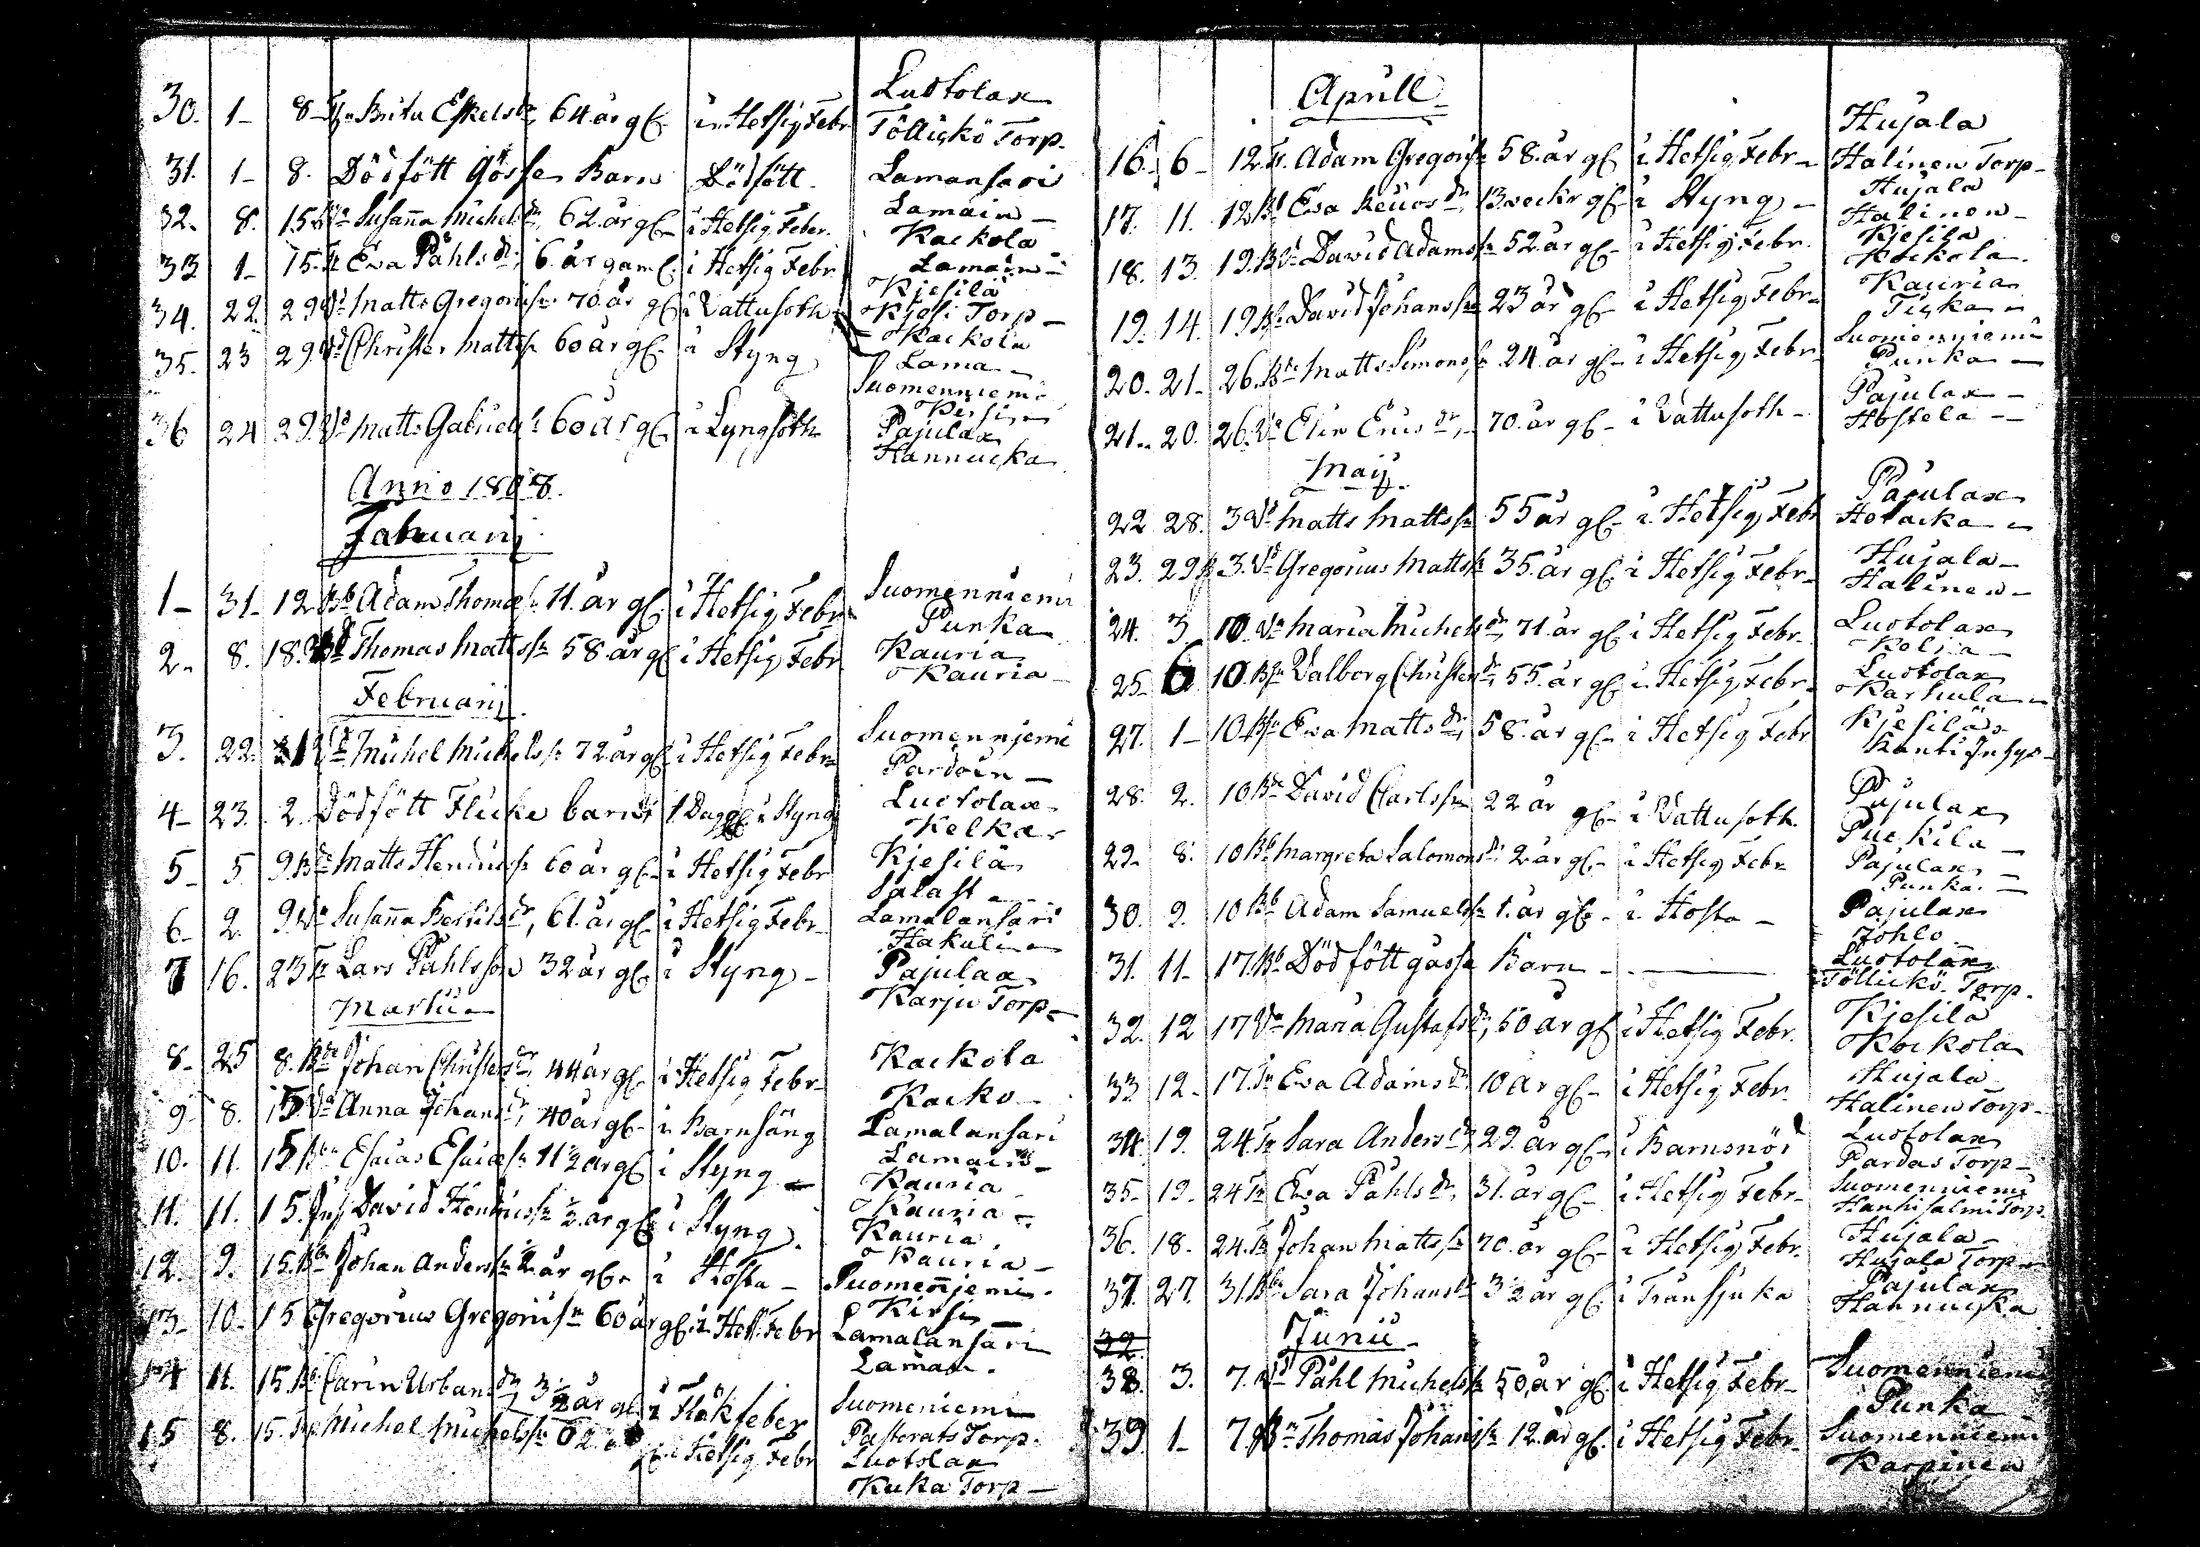 Luotolax
30. 1- 8- Brita Eskelsdr, 64. år gl. i Hetsig Febr Töllickö Torp.
31. 1- 8. Dödfött Gösse Barn Dödfött. Lamansari
Lamain
32. 8. 15. Susanna Michelsdr, 62. år gl. i Hetsig Feber. Kackola
33 1- 15. Ewa Påhlsdr, 6. år gaml. i Hetsig Febr Lamain
Kjesilä
34. 22. 29 Matts Gregoriisn. 70. år gl. i Vattusoth Kjesi Torp
Kackola
35. 23 29 Christer Mattsn 60 år gl. i Styng Lama
Suomenniemi
Kirsin
36 24 29 Matts Gabrielsn 60 år gl. i Lyngsoth Pajulax
Hannucka
Anno 1808.
Januarij
1- 31- 12 Adam Thomæsn 11. år gl. i Hetsig Febr Suomenniemi
Punka
2. 8. 18. Thomas Mattssn 58. år gl i Hetsig Febr Kauria
Kauria
Februarij
3. 22. Michel Michelssn 72 år gl i Hetsig Febr Suomennjemi
Pardoin
4- 23. 2. Dödfött Flicke barn 1. Dag gl. i Styng Luotolax
Kelka
5- 5 9 Matts Hendricssn 60 år gl. i Hetsig Febr Kjesilä
Salast
6- 2. 9 Susanna Bertilsdr, 61. år gl. i Hetsig Febr Lamalansari
Hakulin
7 16. 23 Lars Påhlsson 32 år gl. i Styng Pajulax
Karju Torp
Martii
8- 25 8. Johan Christersn, 44 år gl. i Hetsig Febr Kackola
Kacko
9- 8. 15 Anna Johansdr, 40 år gl. i Barnsäng Lamalansari
Lamain
10. 11. 15. Esaias Esaiæsn 1 1/2 år gl i Styng Kauria
Kauria
11. 11. 15. David Hendricssn 2. år gl i Styng Kauria
Kauria
12. 9. 15. Johan Anderssn 2. år gl. i Hosta Suomennjemi
Kirsi
13- 10- 15 Gregorius Gregoriisn 60 år gl. i Hets. Febr Lamalansari
Lamain
14 11. 15. Carin Urbansdr, 3 1/2 år gl. i Fläkfeber Suomeniemi
Pastorats Torp.
15 8. 15. Michel Michelssn 62. år gl. i Hetsig Febr Luotolax
Kuka Torp
Aprill
Hujala
16. 6- 12. Adam Gregorisn 58. år gl i Hetsig Febr Halinen Torp
Hujala
17. 11. 12 Ewa dr, 13. weckr gl. i Styng Halinen
Kjesila
18. 13. 19. David Adamssn 52. år gl. i Hetsig Febr. Kockola
Kauria
19. 14. 19 David Johanssn 23 år gl. i Hetsig Febr Tiska
Suomenniemi
20. 21- 26. Matts Simonssn 24. år gl. i Hetsig Febr Punka
Pajulax
21. 20. 26. Elin Ericsdr, 70. år gl. i Vattusoth Hostela
Maij.
Pajulax
22 28. 3 Matts Mattssn 55 år gl. i Hetsig Febr
23. 29 3. Gregorius Mattssn 35. år gl. i Hetsig Febr Hujala
Halinen
24. 3 10 Maria Michelsdr, 71. år gl. i Hetsig Febr. Luotolax
25- 6 10. Valborg Christersdr, 55. år gl. i Hetsig Febr Luotolax
Karhula
27. 1- 10. Ewa Mattsdr, 58. år gl. i Hetsig Febr Kjesiläs
28. 2. 10 David Carlssn 22 år gl. i Vattusoth. Pajulax
Puckila
29. 8. 10 Margreta Salomonsdr 2 år gl. i Hetsig Febr Pajulax
Punka.
30. 9. 10 Adam Samuelssn 1. år gl. i Hosta Pajulax
Johlo
31. 11- 17. Dödfött gosse Barn Luotolax
Töllickö. Torp.
32. 12 17 Maria Gustafsdr, 50 år gl i Hetsig Febr. Kjesilä
Kockola
33 12- 17. Ewa Adamsdr 10 år gl. i Hetsig Febr. Hujala
Halinen Torp
34 19. 24. Sara Andersdr, 29. år gl. i Barnsnöd Luotolax
Pardas Torp
35- 19- 24 Ewa Påhlsdr, 31. år gl. i Hetsig Febr Suomenniemi
Hanhisalmi Torp
36. 18. 24. Johan Mattssn 70. år gl. i Hetsig Febr. Hujala
Hujala Torp
37. 27. 31. Sara Johansdr 3 1/2 år gl i Transjuka Pajulax
Hannucka
32
Junii
38. 3. 7. Påhl Michelssn 50, år gl. i Hetsig Febr Suomenniemi
Punka
39. 1- 7. Thomas Johanssn 12. år gl. i Hetsig Febr Suomenniemi
Karpinen